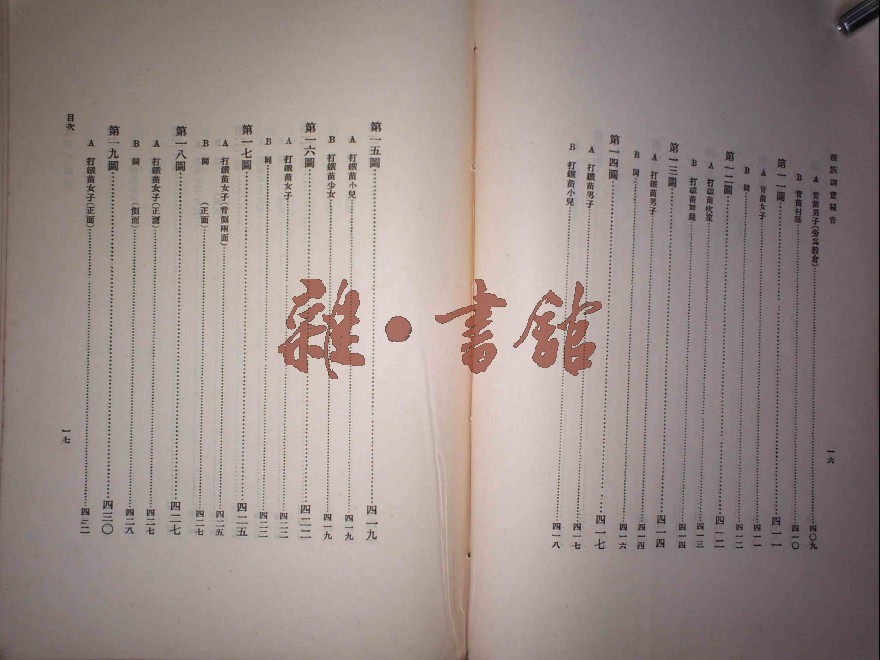 苗族調查報告
A 青苗男子(旁爲穀倉)……四〇九
B 青苗村落……四一〇
第一一圖……四一一
A 青苗女子……四一一
B 同……四一二
第一二圖……四一二
A 打鐵苗吹笙……四一三
B 打鐵苗舞踊……四一四
第一三圖……四一四
A 打鐵苗男子……四一四
B 同……四一六
第一四圖……四一七
A 打鐵苗男子……四一七
B 打鐵苗小兒……四一八
一六
第一五圖……四一九
A 打鐵苗小兒……四一九
B 打鐵苗少女……四一九
第一六圖……四二二
A 打鐵苗女子……四二二
B 同……四二二
第一七圖……四二五
A 打鐵苗女子(背側兩面)……四二五
B 同 (正面)……四二七
第一八圖……四二七
A 打鐵苗女子(正面)……四二七
B 同 (側面)……四二八
第一九圖……四三〇
A 打鐵苗女子(正面)
目次
一七
雜·書館